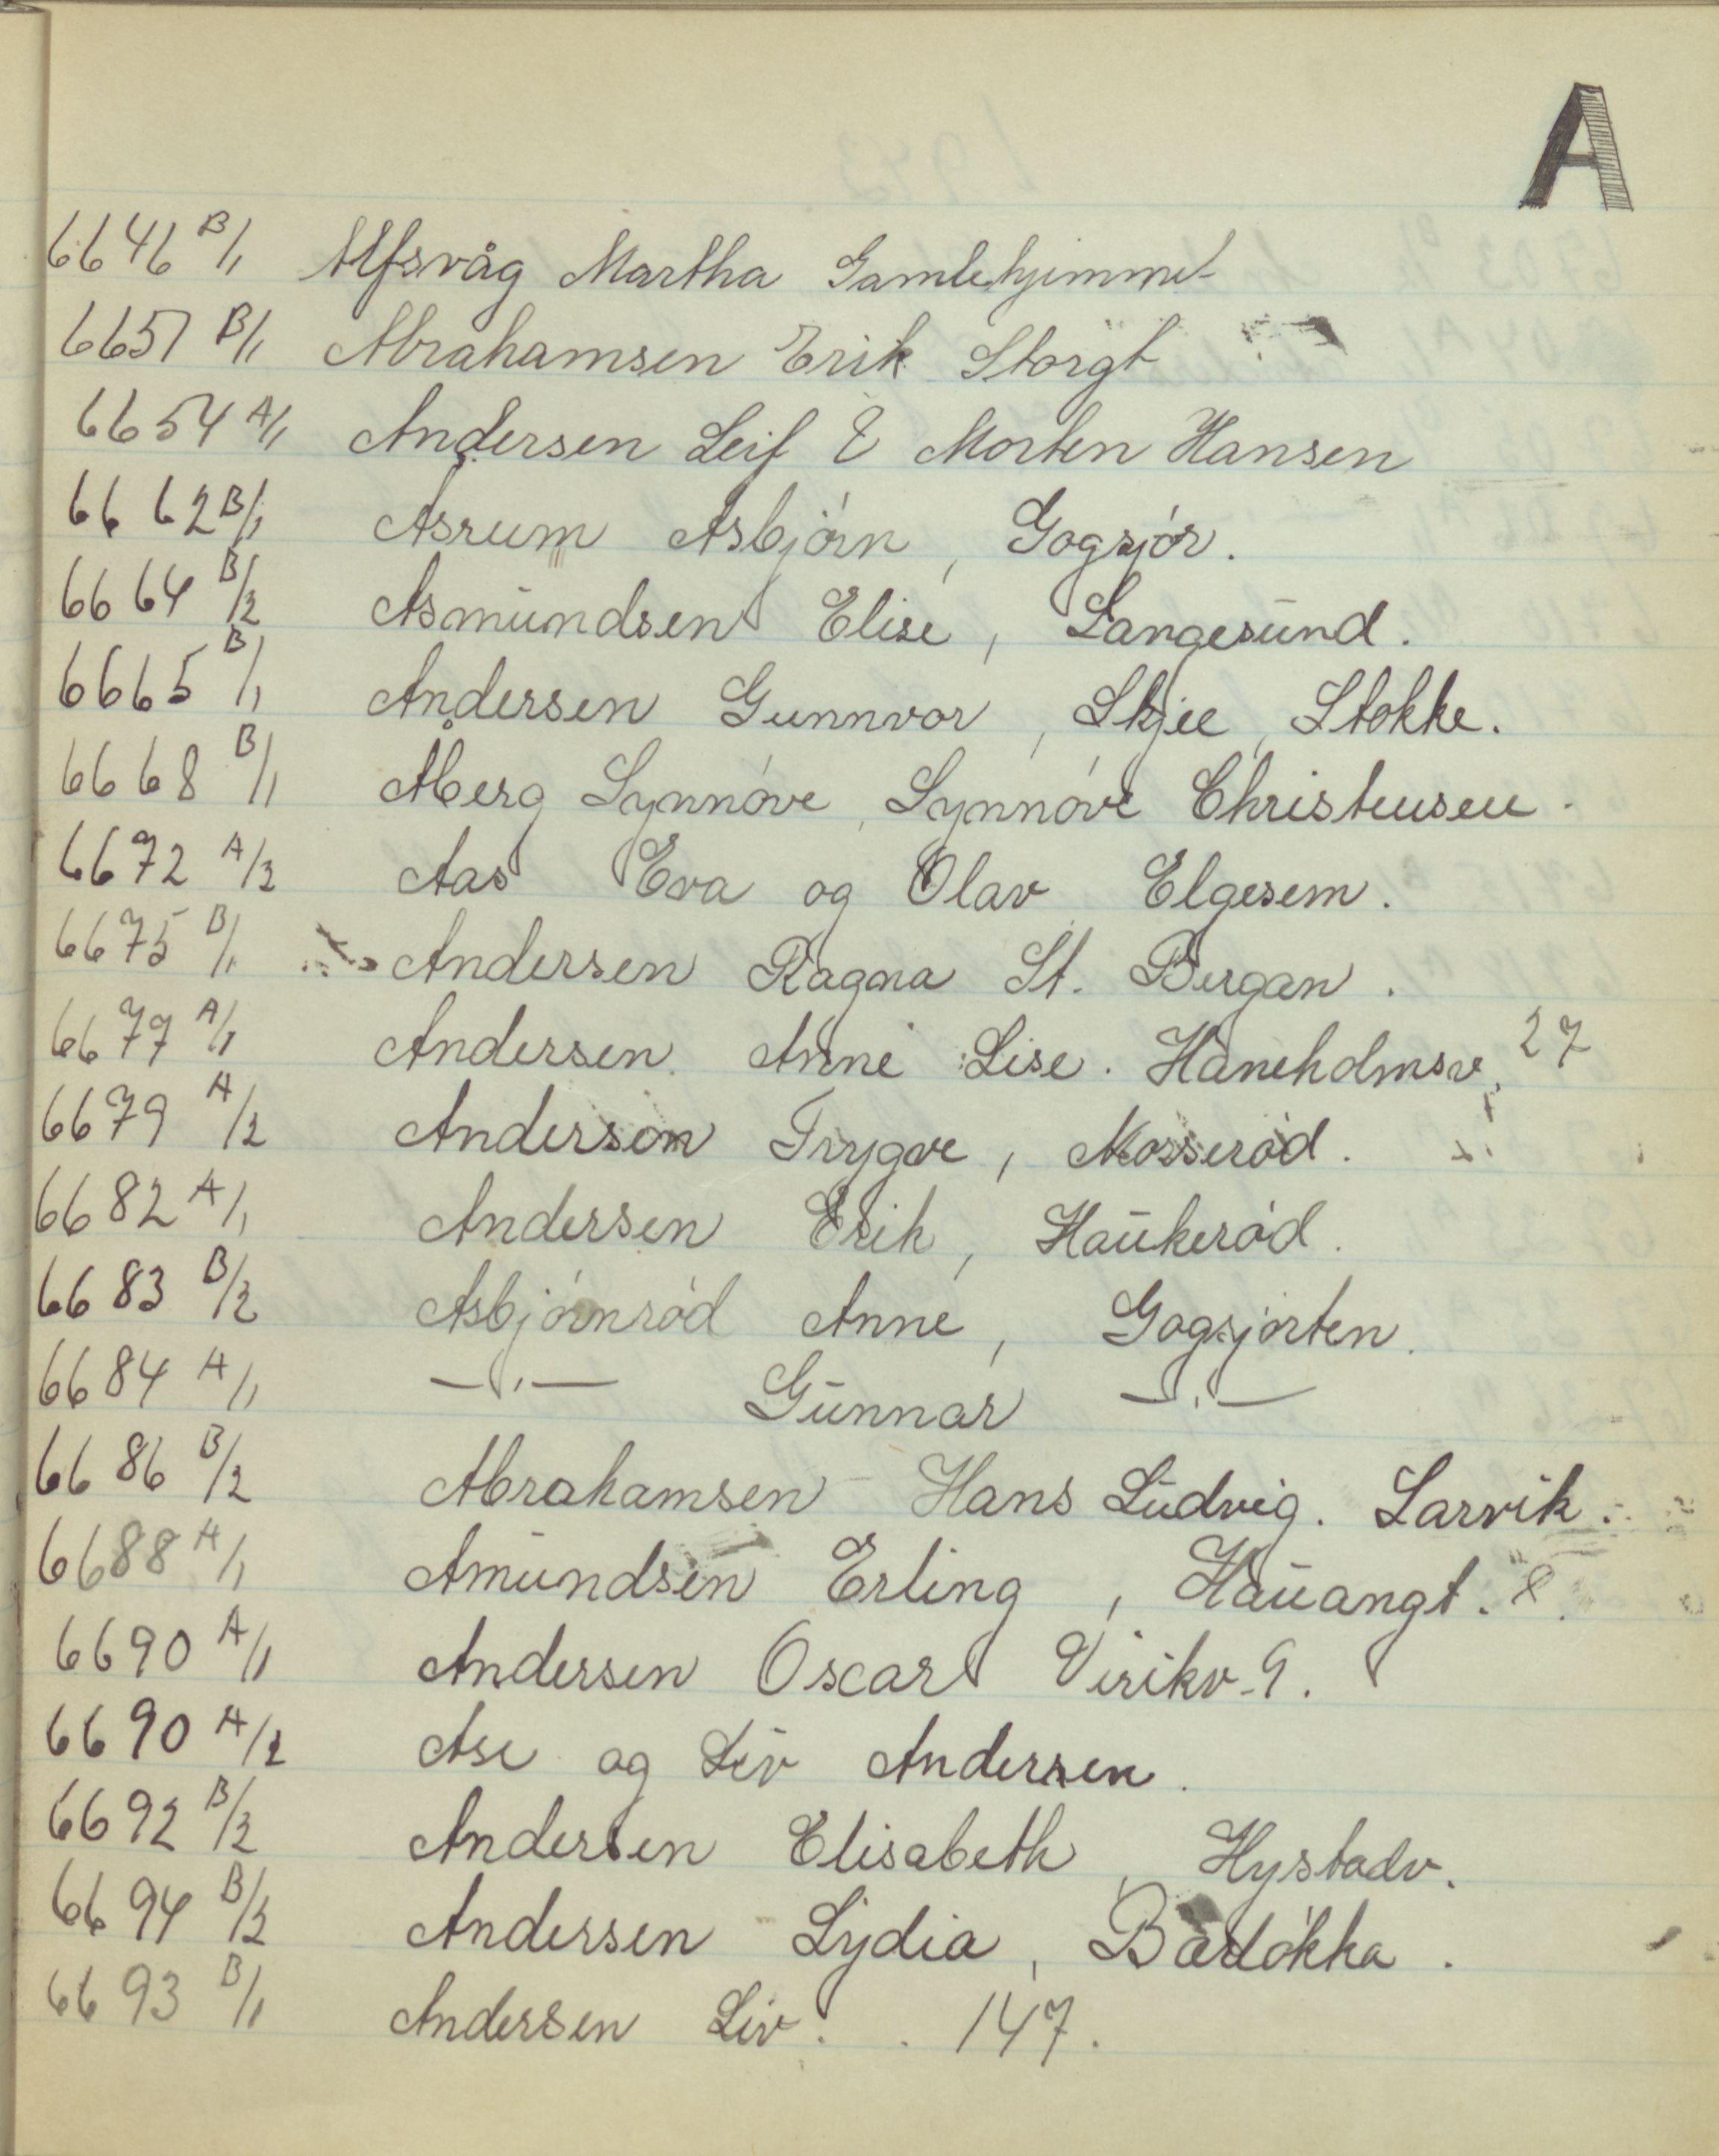 A
6646 B/1 Alfsvåg Martha Gamlehjimmet
6651 B/1 Abrahamsen Erik Storgt
6654 A/1 Andersen Leif & Morten Hansen
6662 B/1 Asrum Asbjörn, Gogsjór.
6664 B/2 Asmundsen Elise, Langesund.
6665 B/1 Andersen Gunnvor, Skjee, Stokke.
6668 B/1 Åberg Synnóve, Synnóve Christensen.
6672 A/2 Aas Eva og Olav Elgesem.
6675 B/1 Andersen Ragna St. Bergan.
6677 A/1 Andersen Anne Lise. Haneholmsv. 27
6679 A/2 Anderson Trygve, Mosseród.
6682 A/1 Andersen Erik, Haukeród.
6683 B/2 Asbjórnród Anne, Gogsjorten.
6684 A/1 —"— Gunnar —"—
6686 B/2 Abrahamsen Hans Ludvig. Larvik.
6688 A/1 Amundsen Erling, Hauangt. 8.
6690 A/1 Andersen Oscar Virikv. 9.
6690 A/2 Ase og Liv Andersen.
6692 B/2 Andersen Elisabeth, Hystadv.
6694 B/2 Andersen Lydia, Barlókka.
6693 B/1 Andersen Liv. 147.